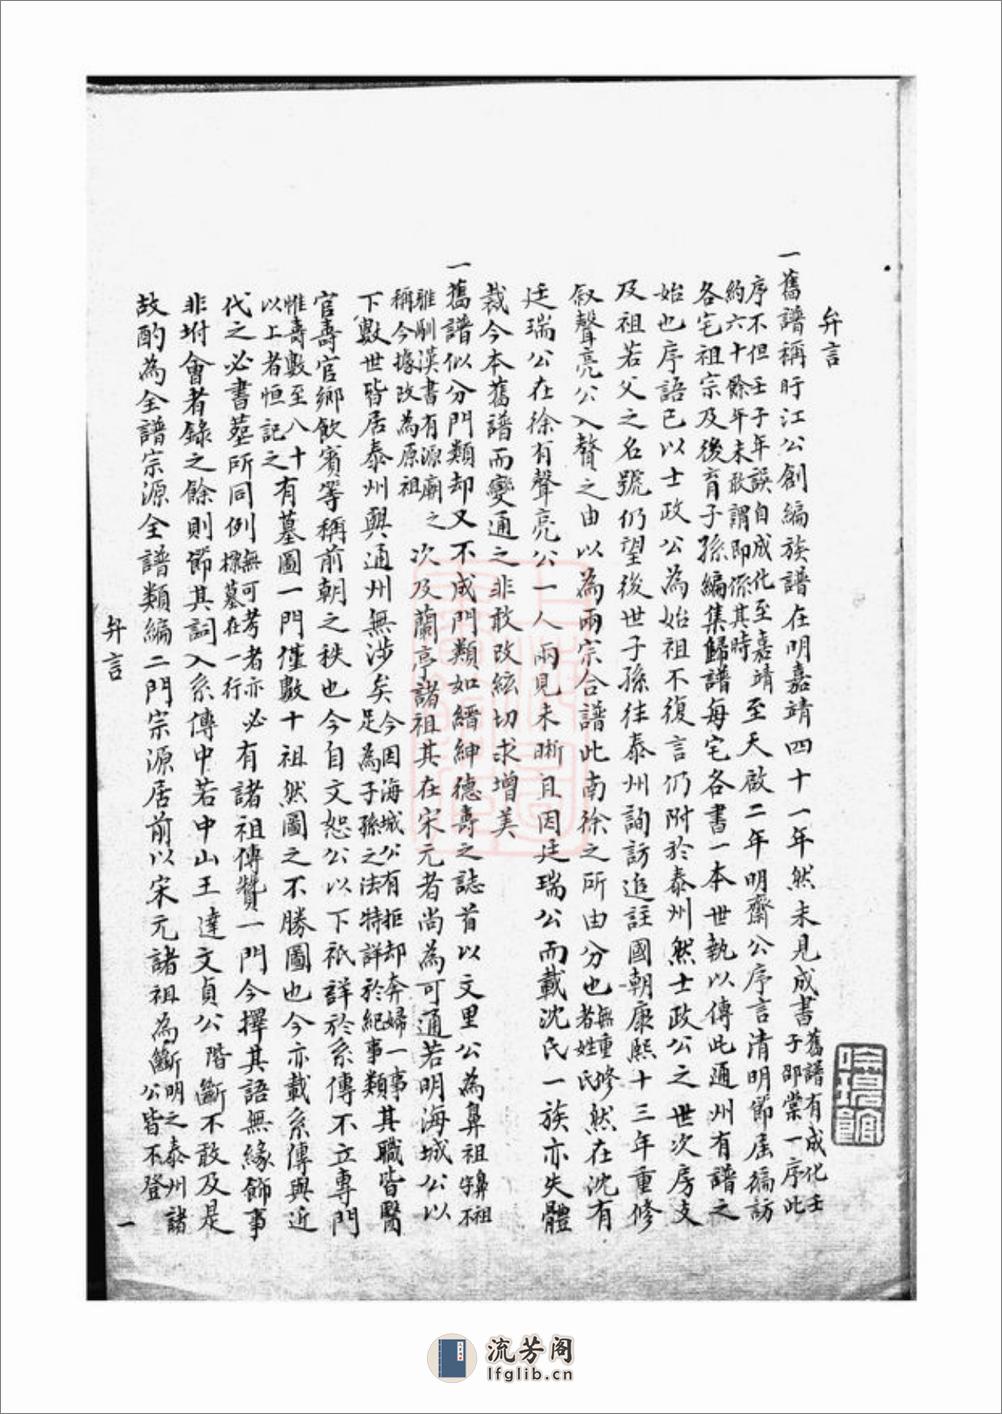 弁言
一舊譜稱盱江公創編族譜在明嘉靖四十一年然未見成書舊譜有成化壬
子邵棠一序此
序不但壬子年誤自成化至嘉靖
約六十餘年未敢謂即係其時至天啟二年明齋公序言清明節屆徧訪
各宅祖宗及後育子孫編集歸譜每宅各書一本世執以傳此通州有譜之
始也序語已以士政公為始祖不復言仍附於泰州然士政公之世次房支
及祖若父之名號仍望後世子孫往泰州詢訪追註國朝康熙十三年重修
叙聲亮公入贅之由以為兩宗合譜此南徐之所由分也無重修
者姓氏然在沈有
廷瑞公在徐有聲亮公一人兩見未晰且因廷瑞公而載沈氏一族亦失體
裁今本舊譜而變通之非敢改絃切求增美
一舊譜似分門類却又不成門類如縉紳德壽之誌首以文里公為鼻祖鼻祖
字不
雅馴漢書有源廟之
稱今據改為原祖次及蘭亭諸祖其在宋元者尚為可通若明海城公以
下數世皆居泰州與通州無涉矣今因海城公有拒却奔婦一事
足為子孫之法特詳於紀事類其職皆醫
官壽官鄉飲賓等稱前朝之秩也今自文恕公以下祇詳於系傳不立專門
惟壽數至八十
以上者恒記之有墓圖一門僅數十祖然圖之不勝圖也今亦載系傳與近
代之必書墓所同例無可考者亦
標墓在一行必有諸祖傳贊一門今擇其語無緣飾事
非坿會者錄之餘則節其詞入系傳中若中山王達文貞公階斷不敢及是
故酌為全譜宗源全譜類編二門宗源居前以宋元諸祖為斷明之泰州諸
公皆不登
弁言
一
流芳阁
lfglib.cn